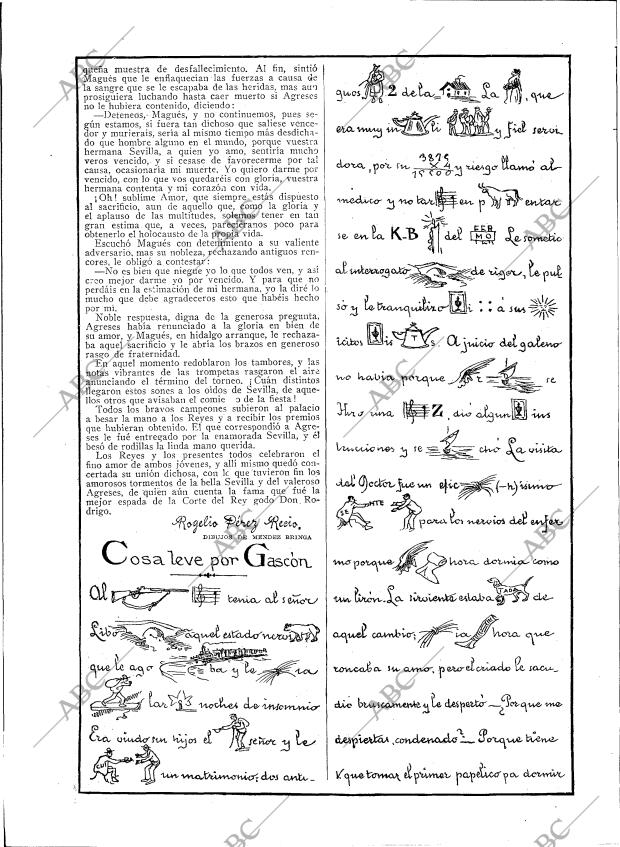 queña muestra de desfallecimiento. Al fin, sintió
Magués que le enflaquecían las fuerzas a causa de
la sangre que se le escapaba de las heridas, mas aun
prosiguiera luchando hasta caer muerto si Agreses
no le hubiera contenido, diciendo:
—Deteneos, Magués, y no continuemos, pues se-
gún estamos, si fuera tan dichoso que saliese vence-
dor y murierais, sería al mismo tiempo más desdicha-
do que hombre alguno en el mundo, porque vuestra
hermana Sevilla, a quien yo amo, sentiría mucho
veros vencido, y si cesase de favorecerme por tal
causa, ocasionaría mi muerte. Yo quiero darme por
vencido, con lo que vos quedaréis con gloria, vuestra
hermana contenta y mi corazón con vida.
¡Oh! sublime Amor, que siempre estás dispuesto
al sacrificio, aun de aquello que, como la gloria y
el aplauso de las multitudes, solemos tener en tan
gran estima que, a veces, parécenos poco para
obtenerlo el holocausto de la propia vida.
Escuchó Magués con detenimiento a su valiente
adversario, mas su nobleza, rechazando antiguos ren-
cores, le obligó a contestar:
—No es bien que niegue yo lo que todos ven, y así
creo mejor darme yo por vencido. Y para que no
perdáis en la estimación de mi hermana, yo la diré lo
mucho que debe agradeceros esto que habéis hecho
por mí.
Noble respuesta, digna de la generosa pregunta,
Agreses había renunciado a la gloria en bien de
su amor, y Magués, en hidalgo arranque, le rechaza-
ba aquel sacrificio y le abría los brazos en generoso
rasgo de fraternidad.
En aquel momento redoblaron los tambores, y las
notas vibrantes de las trompetas rasgaron el aire
anunciando el término del torneo. ¡Cuán distintos
llegaron estos sones a los oídos de Sevilla, de aque-
llos otros que avisaban el comie o de la fiesta!
Todos los bravos campeones subieron al palacio
a besar la mano a los Reyes y a recibir los premios
que hubieran obtenido. El que correspondió a Agre-
ses le fué entregado por la enamorada Sevilla, y él
besó de rodillas la linda mano querida.
Los Reyes y los presentes todos celebraron el
fino amor de ambos jóvenes, y allí mismo quedó con-
certada su unión dichosa, con lo que tuvieron fin los
amorosos tormentos de la bella Sevilla y del valeroso
Agreses, de quien aún cuenta la fama que fué la
mejor espada de la Corte del Rey godo Don Ro-
drigo.
Rogelio Pérez Recio.
DIBUJOS DE MENDEZ BRINGA
Cosa leve por Gascón
Al tenía al señor
Libo aquel estado nervi
que le ago ba y le ia
las noches de insomnio
Era viudo sin hijos el señor y le
un matrimonio; dos anti-
guos 2 de la La que
era muy in li y fiel servi
dora, por su 3875 X 4 15500 y riesgo llamó al
médico y notar en p entar
se en la K-B del Le sometió
al interrogato de rigor, le pul
só y le tranquilizó i :: á sus
icitos is T s A juicio del galeno
no había porque r se
Hizo una Z, dió algun ins
trucciones y se chó La visita
del Doctor fue un efic (-h)ísimo
SE NTE para los nervios del enfer
mo porque hora dormía como
un lirón. La sirvienta estaba TADA de
aquel cambio; ia hora que
roncaba su amo, pero el criado le sacu-
dió bruscamente y le despertó —¿Porque me
despiertas, condenado? — Porque tiene
V que tomar el primer papelico pa dormir
ABC